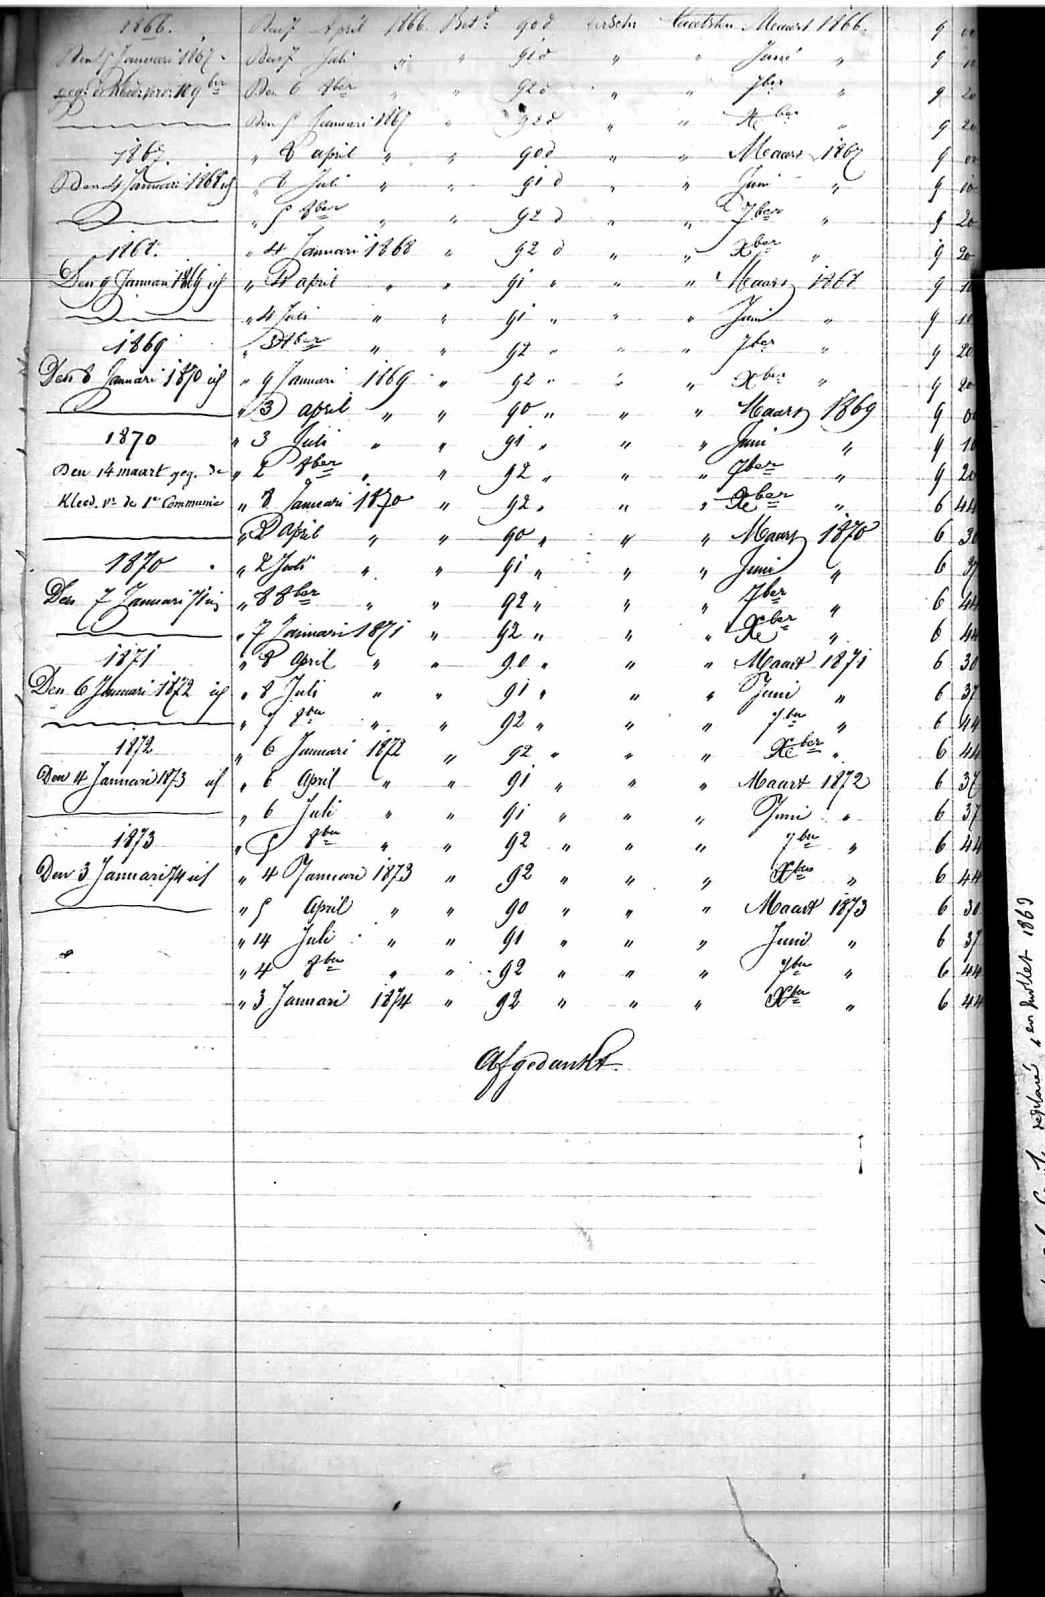 1866. Den 7 April 1866 Bet.d 90 d verschr laatstn Maart 1866. 9 00
Den 5 Januari 1867 Den 7 Juli " " 91 d " " Juni " 9 10
geg. de 10 9ber Den 6 8ber " " 92 d " " 7ber " 9 20
Den 5 Januari 1867 " 92 d " " Xber " 9 20
1867. " 8 april " " 90 d " " Maart 1867 9 00
Den 4 Januari 1868 " 8 Juli " " 91 d " " Juni " 9 10
" 5 8ber " " 92 d " " 7ber " 9 20
1868. " 4 Januari 1868 " 92 d " " Xber " 9 20
Den 9 Januari 1869 " 4 april " " 91 " " " Maart 1868 9 10
" 4 Juli " " 91 " " " Juni " 9 10
1869 " 3 8ber " " 92 " " " 7ber " 9 20
Den 8 Januari 1870 " 9 Januari 1869 " 92 " " " Xber " 9 20
" 3 april " " 90 " " " Maart 1869 9 00
1870 " 3 Juli " " 91 " " " Juni " 9 10
Den 14 maart geg. de " 2 8ber " " 92 " " " 7ber " 9 20
Kleed. vr de 1e Communie " 8 Januari 1870 " 92 " " " Xber " 6 44
" 2 April " " 90 " " " Maart 1870 6 30
1870 " 2 Juli " " 91 " " " Juni " 6 37
Den 7 Januari 71 " 8 8ber " " 92 " " " 7ber " 6 44
" 7 Januari 1871 " 92 " " " Xber " 6 44
1871 " 8 April " " 90 " " " Maart 1871 6 30
Den 6 Januari 1872 " 8 Juli " " 91 " " " Juni " 6 37
" 7 8ber " " 92 " " " 7ber " 6 44
1872 " 6 Januari 1872 " 92 " " " Xber " 6 44
Den 4 Januari 1873 " 6 April " " 91 " " " Maart 1872 6 37
" 6 Juli " " 91 " " " Juni " 6 37
1873 " 5 8ber " " 92 " " " 7ber " 6 44
Den 3 Januari 74 " 4 Januari 1873 " 92 " " " Xber " 6 44
" 5 April " " 90 " " " Maart 1873 6 30
" 14 Juli " " 91 " " " Juni " 6 37
" 4 8ber " " 92 " " " 7ber " 6 44
" 3 Januari 1874 " 92 " " " Xber " 6 44
Afgedankt.
en Juillet 1863